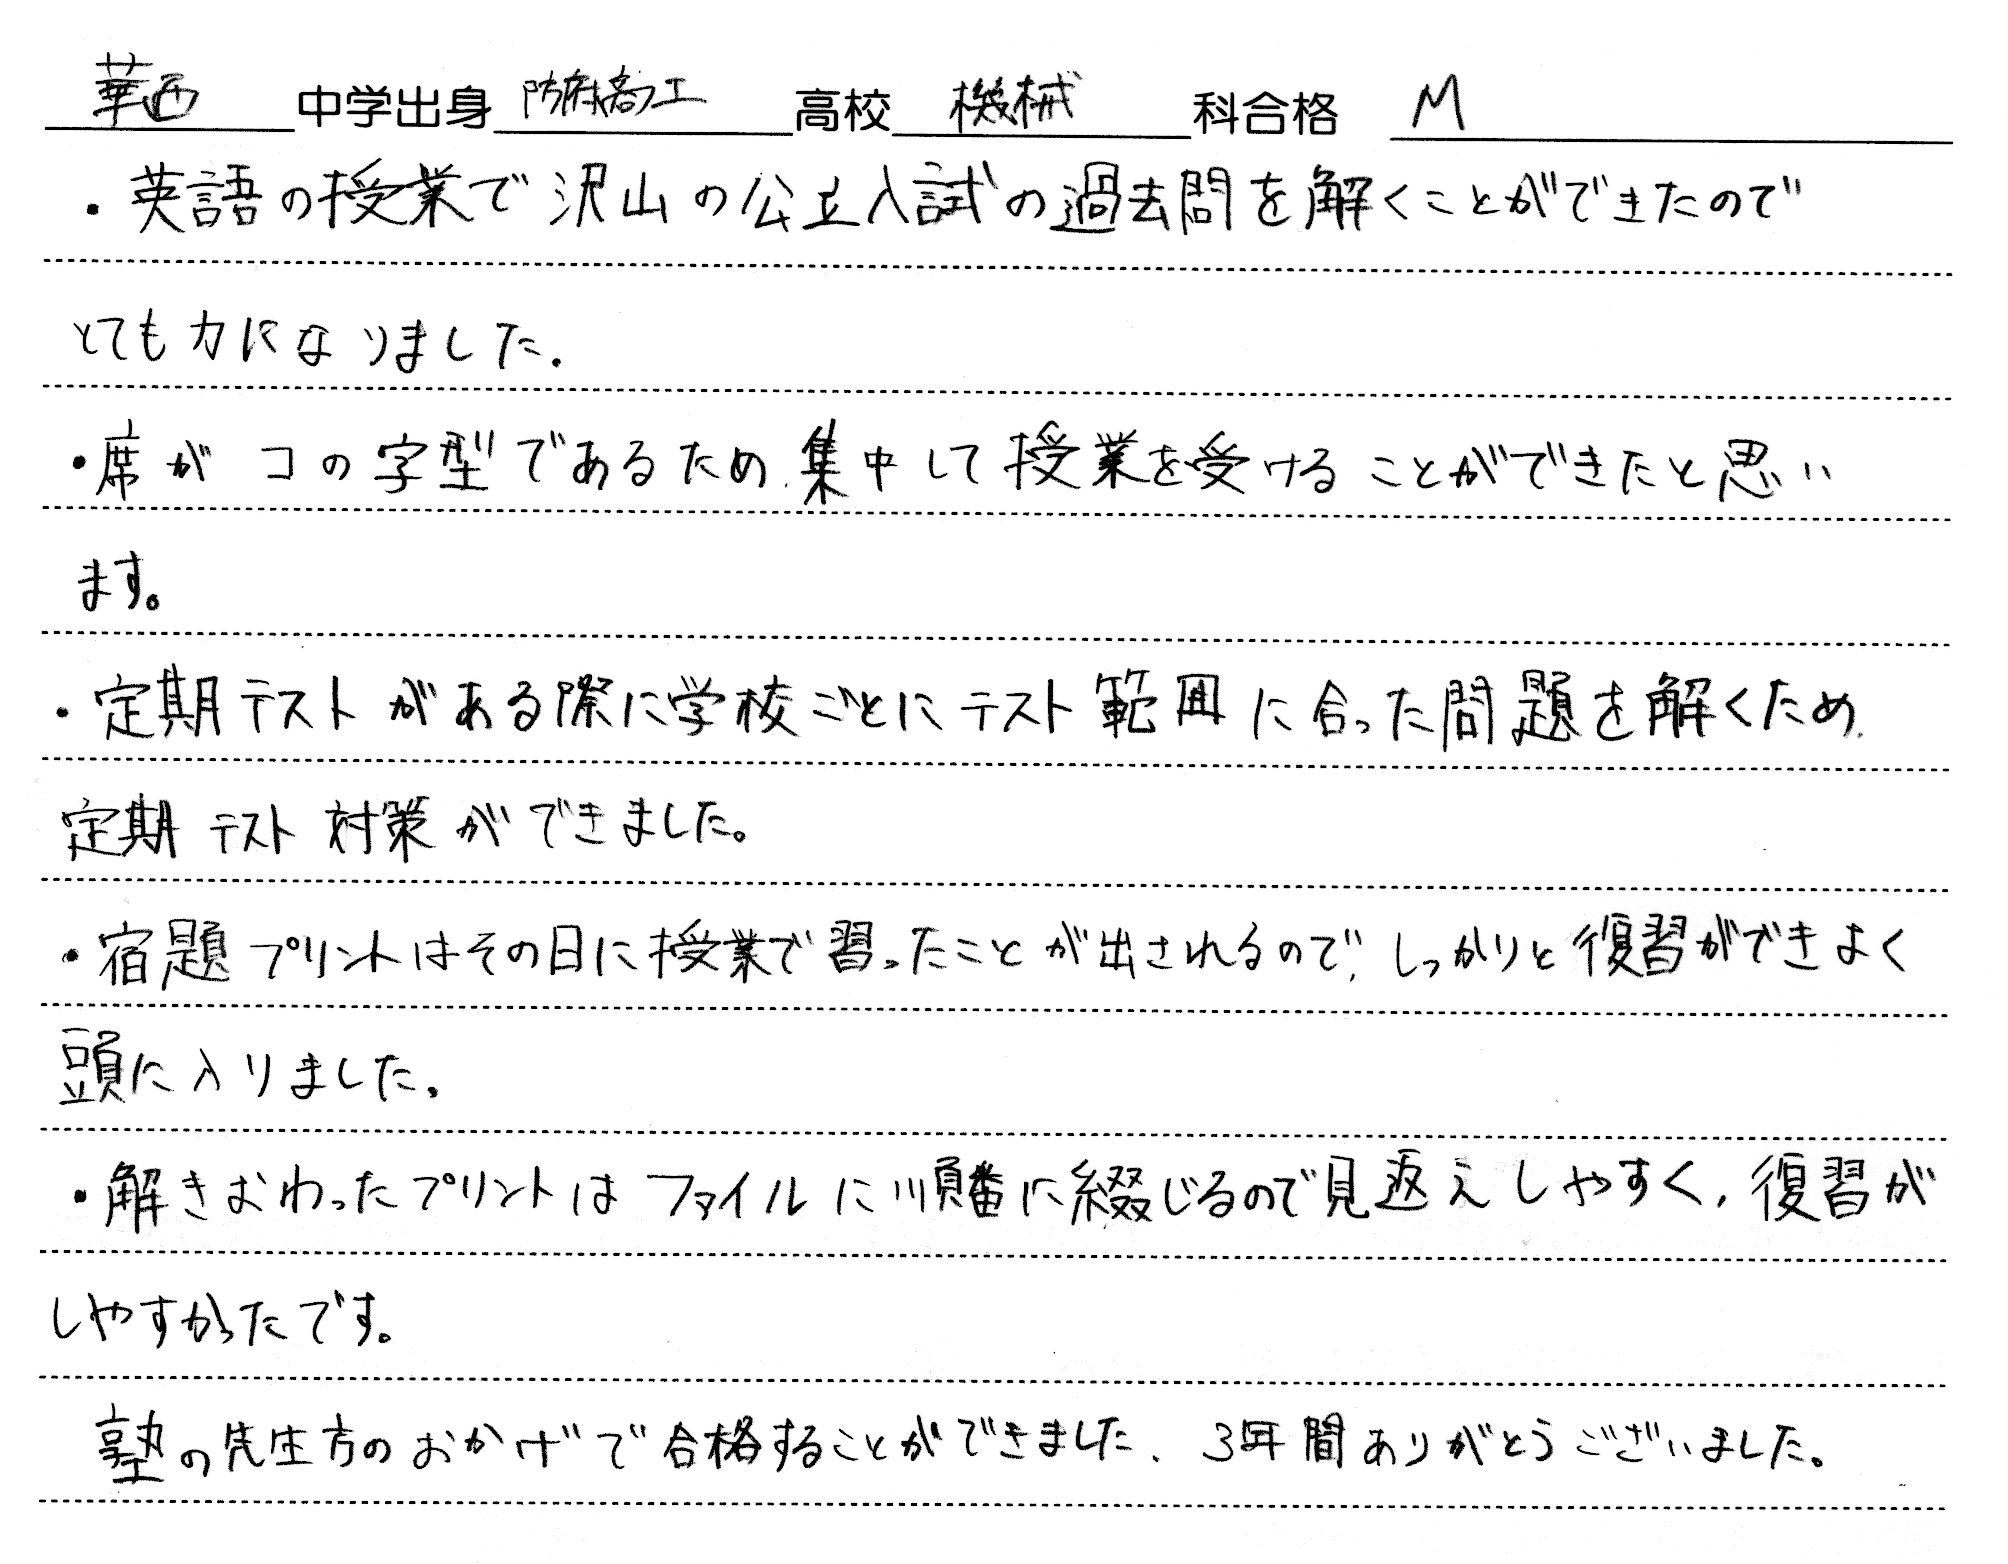 華西 中学出身 防府商工 高校 機械 科合格 M
・英語の授業で沢山の公立入試の過去問を解くことができたので
とても力になりました.
・席がコの字型であるため集中して授業を受けることができたと思い
ます。
・定期テストがある際に学校ごとにテスト範囲に合った問題を解くため、
定期テスト対策ができました。
・宿題プリントはその日に授業で習ったことが出されるので、しっかりと復習ができよく
頭に入りました。
・解きおわったプリントはファイルに順番に綴じるので見返えしやすく、復習が
しやすかったです。
塾の先生方のおかげで合格することができました、3年間ありがとうございました。